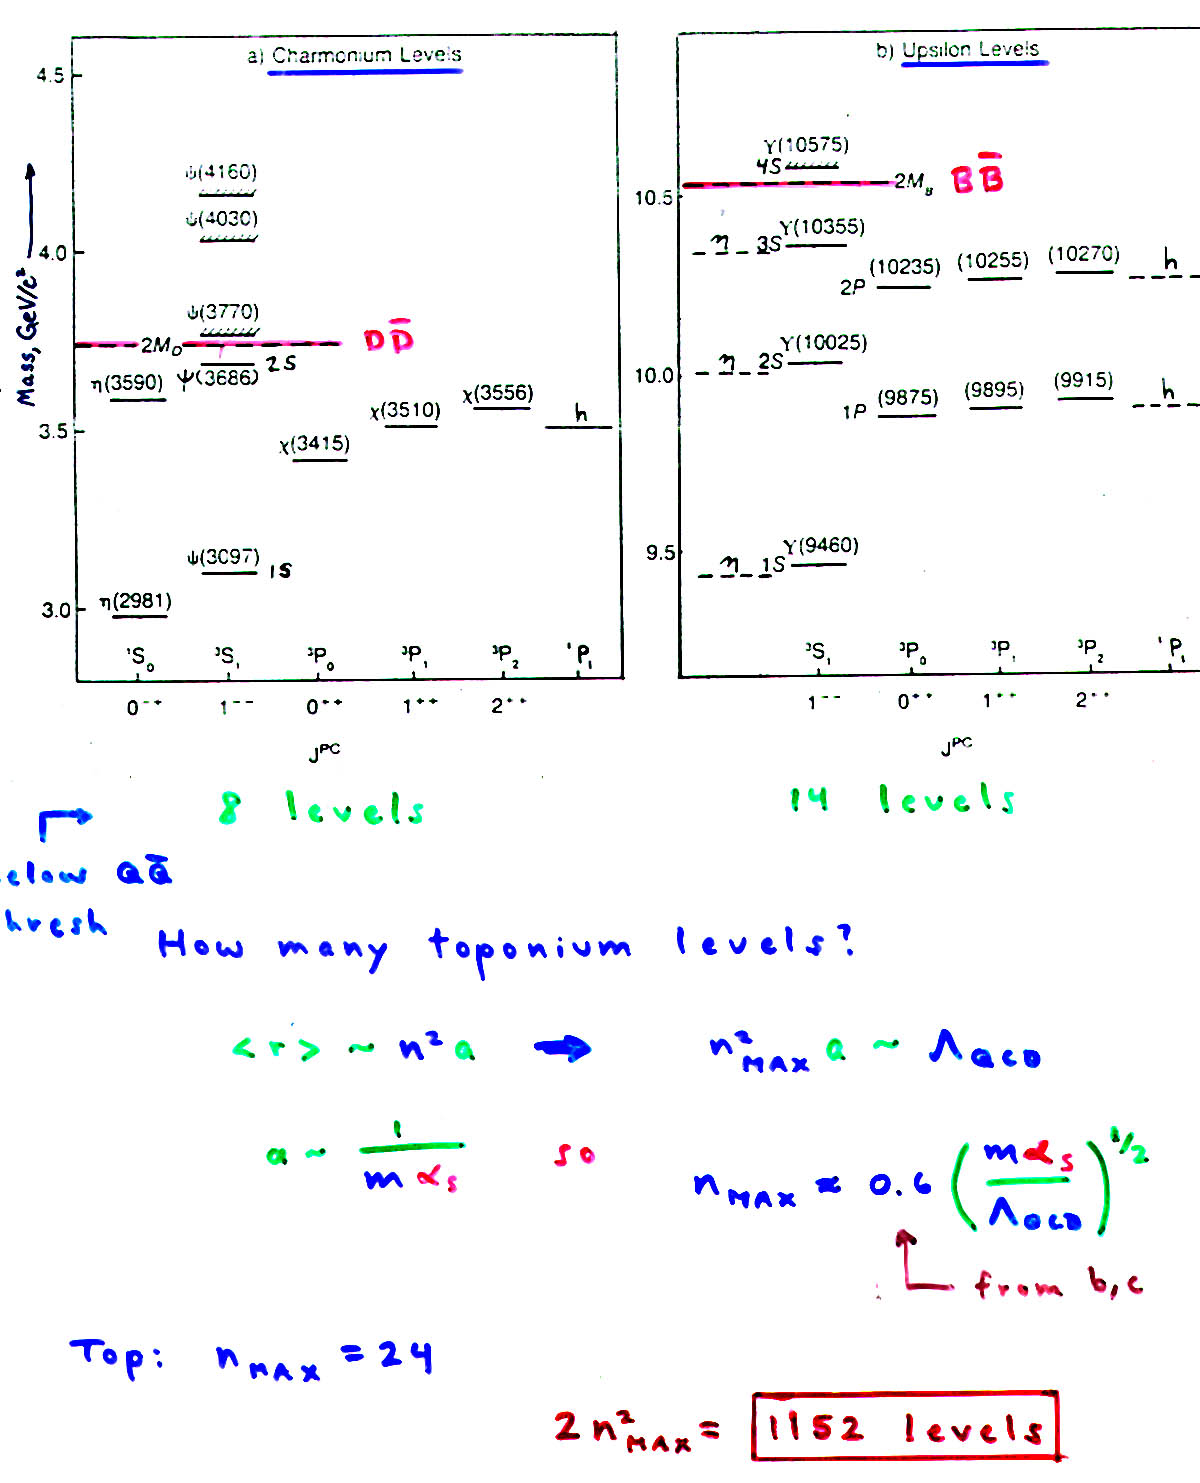 a) Charmonium Levels
4.5
4.0
3.5
3.0
Mass, GeV/c²
ψ(4160)
ψ(4030)
ψ(3770)
2M_D
D D̄
η(3590)
ψ(3686) 2S
χ(3415)
χ(3510)
χ(3556)
h
ψ(3097) 1S
η(2981)
¹S₀ ³S₁ ³P₀ ³P₁ ³P₂ ¹P₁
0⁻⁺ 1⁻⁻ 0⁺⁺ 1⁺⁺ 2⁺⁺
J^PC
b) Upsilon Levels
10.5
10.0
9.5
Υ(10575)
4S
2M_B B B̄
η 3S Υ(10355)
2P (10235) (10255) (10270) h
η 2S Υ(10025)
1P (9875) (9895) (9915) h
η 1S Υ(9460)
³S₁ ³P₀ ³P₁ ³P₂ ¹P₁
1⁻⁻ 0⁺⁺ 1⁺⁺ 2⁺⁺
J^PC
8 levels
14 levels
elow QQ̄
hresh
How many toponium levels?
<r> ~ n² a → n²_MAX a ~ Λ_QCD
a ~ 1/(m α_s) so n_MAX ≈ 0.6 (m α_s / Λ_QCD)^1/2
from b, c
Top: n_MAX = 24
2 n²_MAX = 1152 levels